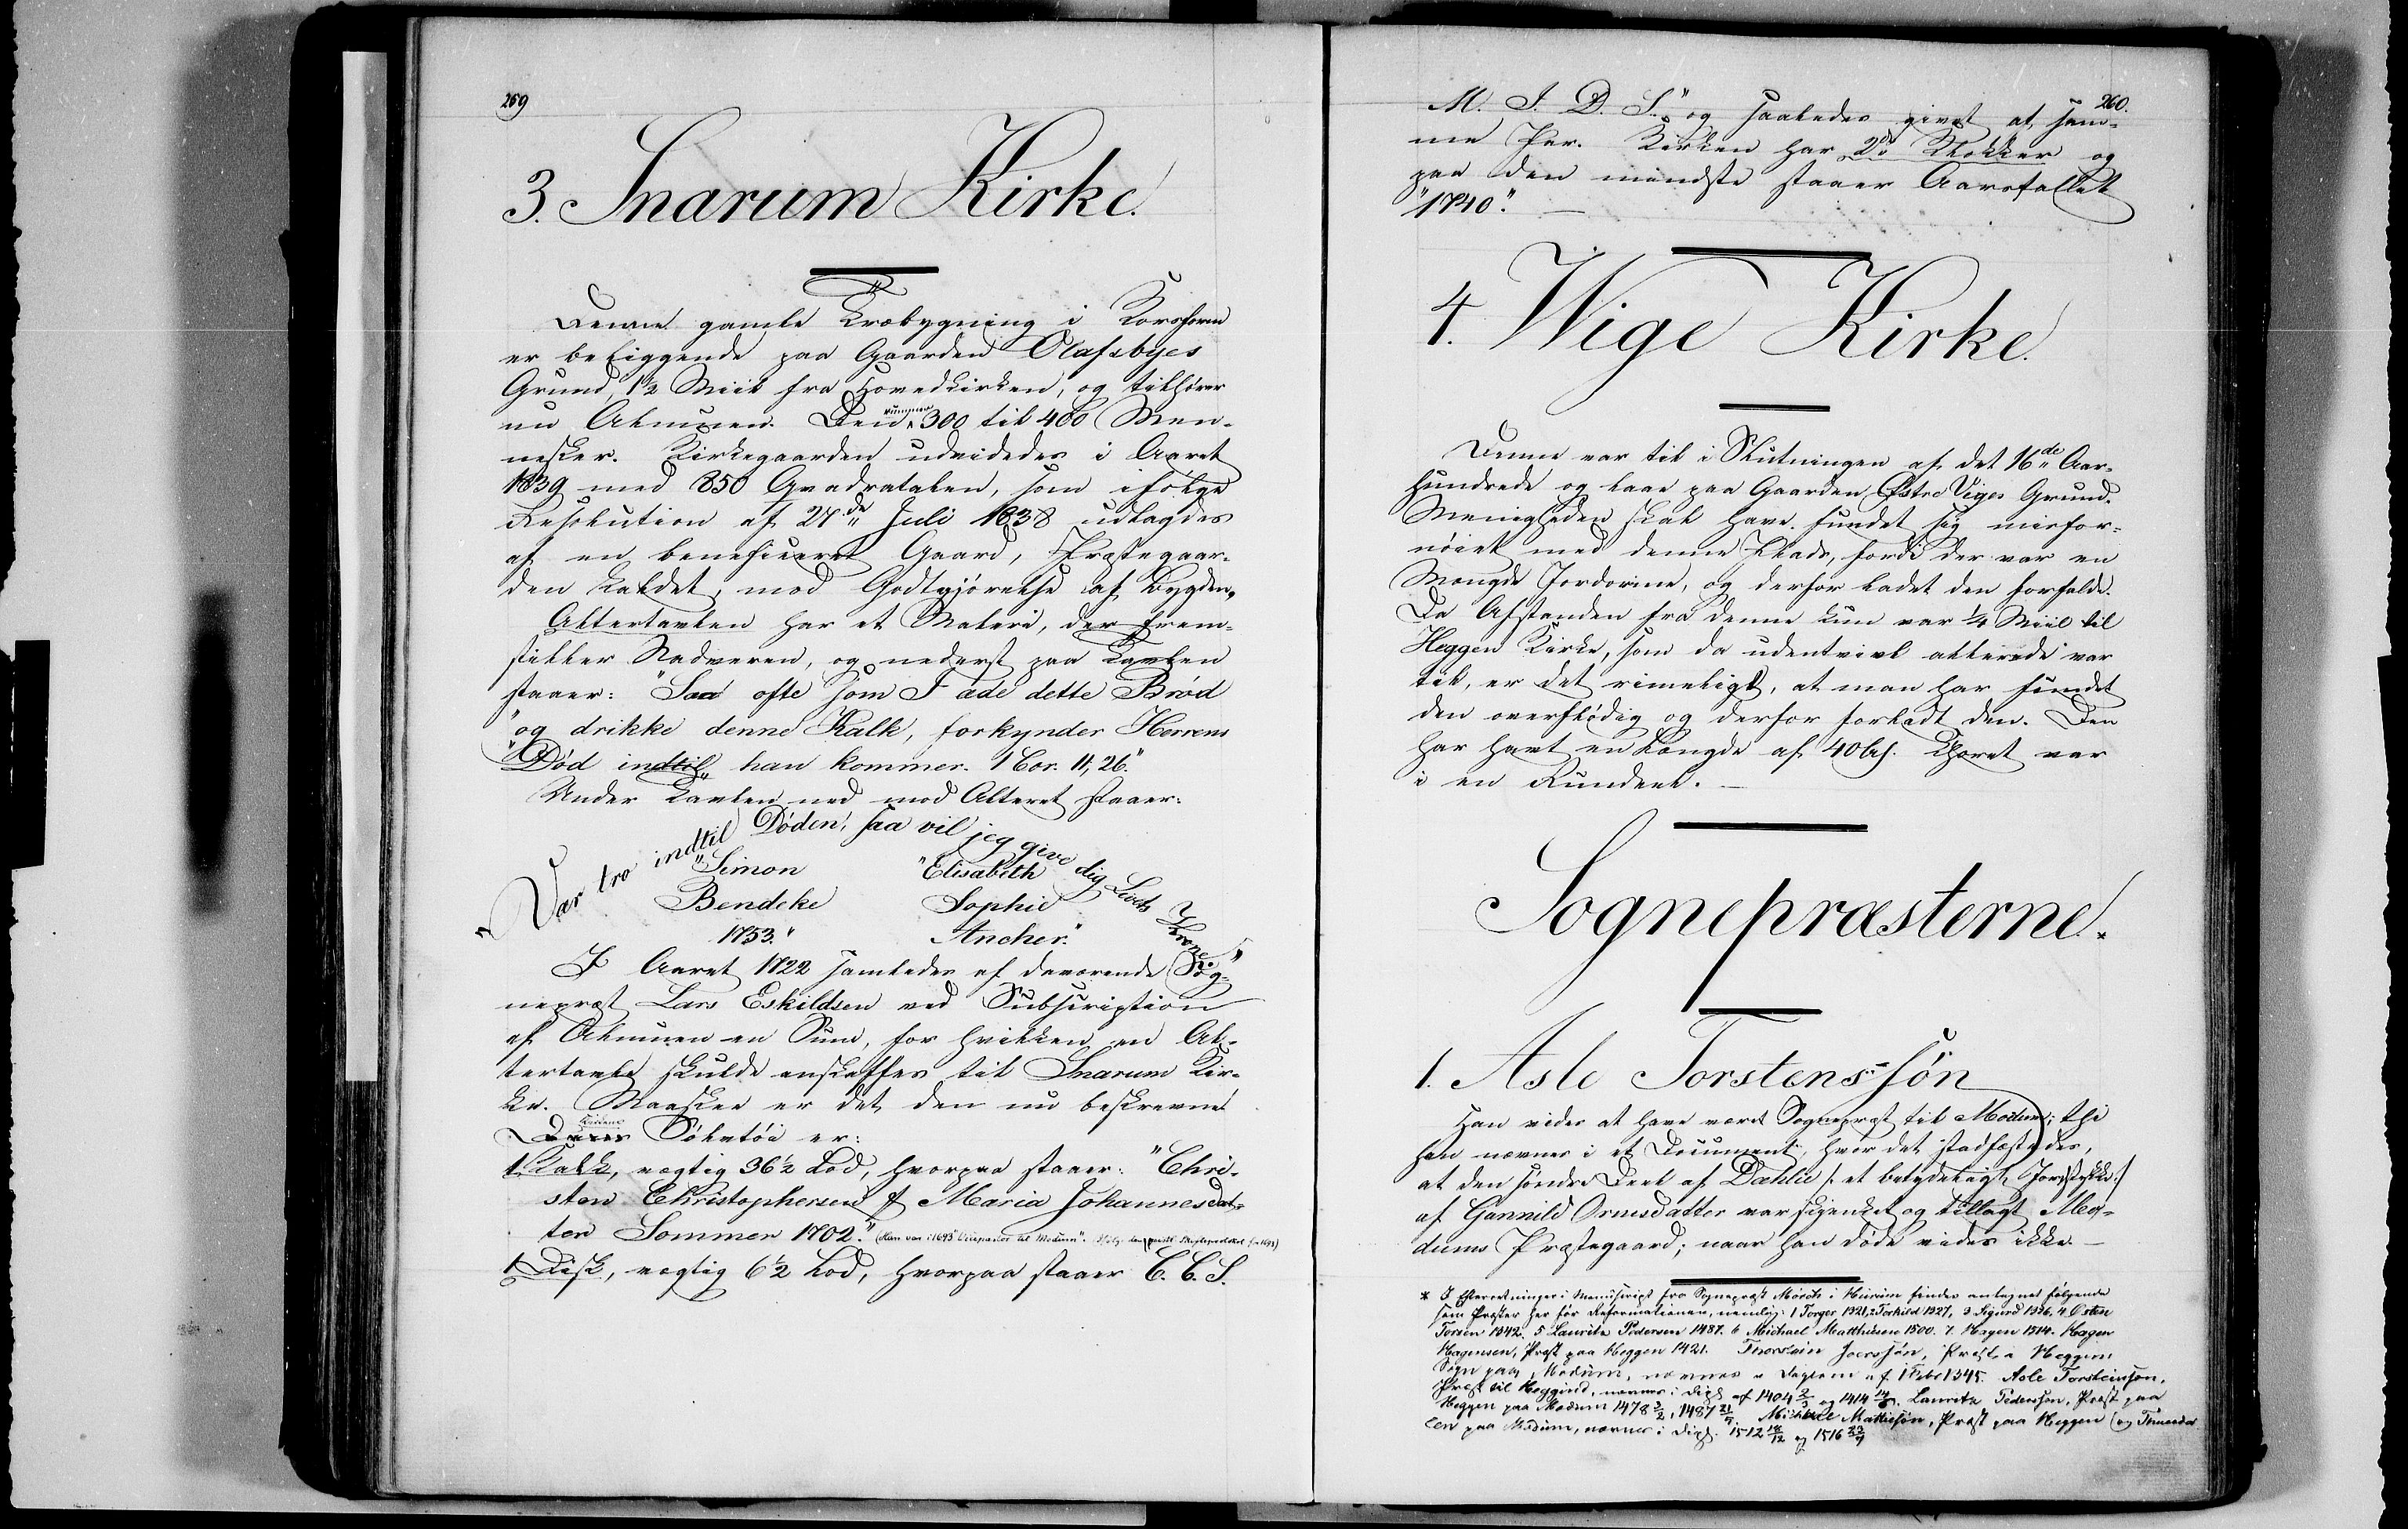 269
3. Snarum Kirke.
Denne gamle Træbygning i Korsform
er beliggende paa Gaarden Olafsbyes
Grund, 1½ Miil fra Hovedkirken, og tilhører
nu Almuen. Den rummer 300 til 400 Men-
nesker. Kirkegaarden udvidedes i Aaret
1839 med 850 Qvadratalen, som ifølge
Resolution af 27de Juli 1838 udlagdes
af en beneficeret Gaard, Præstegaar-
den kaldet, mod Godtgjørelse af Bygden.
Altertavlen har et Maleri, der frem-
stiller Nadveren, og nederst paa Tavlen
staaer: "Saa ofte som I æde dette Brød
"og drikke denne Kalk, forkynder Herrens
"Død indtil han kommer. 1 Cor. 11, 26."
Under Tavlen ned mod Alteret staaer:
"Vær tro indtil Døden, saa vil jeg give dig Livets Krone."
"Simon "Elisabeth
Bendeke Sophie
1753." Ancher."
I Aaret 1722 samledes af daværende Sog-
nepræst Lars Eskildsen ved Subscription
af Almuen en Sum, for hvilken en Al-
tertavle skulde anskaffes til Snarum Kir-
ke. Maaskee er det den nu beskrevne.
Kirkens Sølvtøi er:
1 Kalk, vægtig 36½ Lod, hvorpaa staaer: "Chri-
sten Christophersen & Maria Johannesdat-
ter Sommer 1702." (Han var i 1695 Vicepastor til Modum".
1 Disk, vægtig 6½ Lod, hvorpaa staaer C. C. S.
260.
M. J. D. S." og saaledes givet af sam-
me Par. Kirken har 2de Klokker og
paa den mindste staaer Aarstallet
"1740." —
4. Wige Kirke.
Denne var til i Slutningen af det 16de Aar-
hundrede og laae paa Gaarden Østre Viges Grund.
Menigheden skal have fundet sig misfor-
nøiet med denne Plads, fordi der var en
Mængde Jordorme, og derfor ladet den forfalde.
Da Afstanden fra denne kun var ¼ Miil til
Heggen Kirke, som da udentvivl allerede var
til, er det rimeligt, at man har fundet
den overflødig og derfor forladt den. Den
har havt en Længde af 40 Al. Choret var
i en Rundeel. —
Sognepræsterne.*
1. Asle Torstenssøn
Han vides at have været Sognepræst til Modum; thi
han nævnes i et Document, hvor det stadfæstedes,
at den søndre Deel af Dæhlie /: et betydeligt Jordstykke :/
af Gunnild Ornesdatter var skjenket og tillagt Mo-
dums Præstegaard; naar han døde vides ikke. —
* I Efterretninger i Manuscript fra Sognepræst Mørch i Hurum findes antegnet følgende
som Præster her før Reformationen, nemlig: 1 Torger 1321, 2 Torkild 1327, 3 Sigurd 1336, 4 Østen
Torsen 1342, 5 Laurits Pedersen 1487. 6 Michael Matthiesen 1500. 7. Hagen 1514. Hagen
Hagensen, Præst paa Heggen 1421. Thorstein Joerssøn, Præst i Heggens
Sogn paa Modum, nævnes i Diplom af 1 Febr 1345. Asle Torsteinsøn,
Præst til Heggind, nævnes i Dipl. af 1404 og 1414. Laurits Pederssøn, Præst paa
Heggen paa Modum 1478 3/2, 1487 21/7. Michael Mattissøn, Præst paa Heggen
paa Modum, nævnes i Dipl. 1512 og 1516